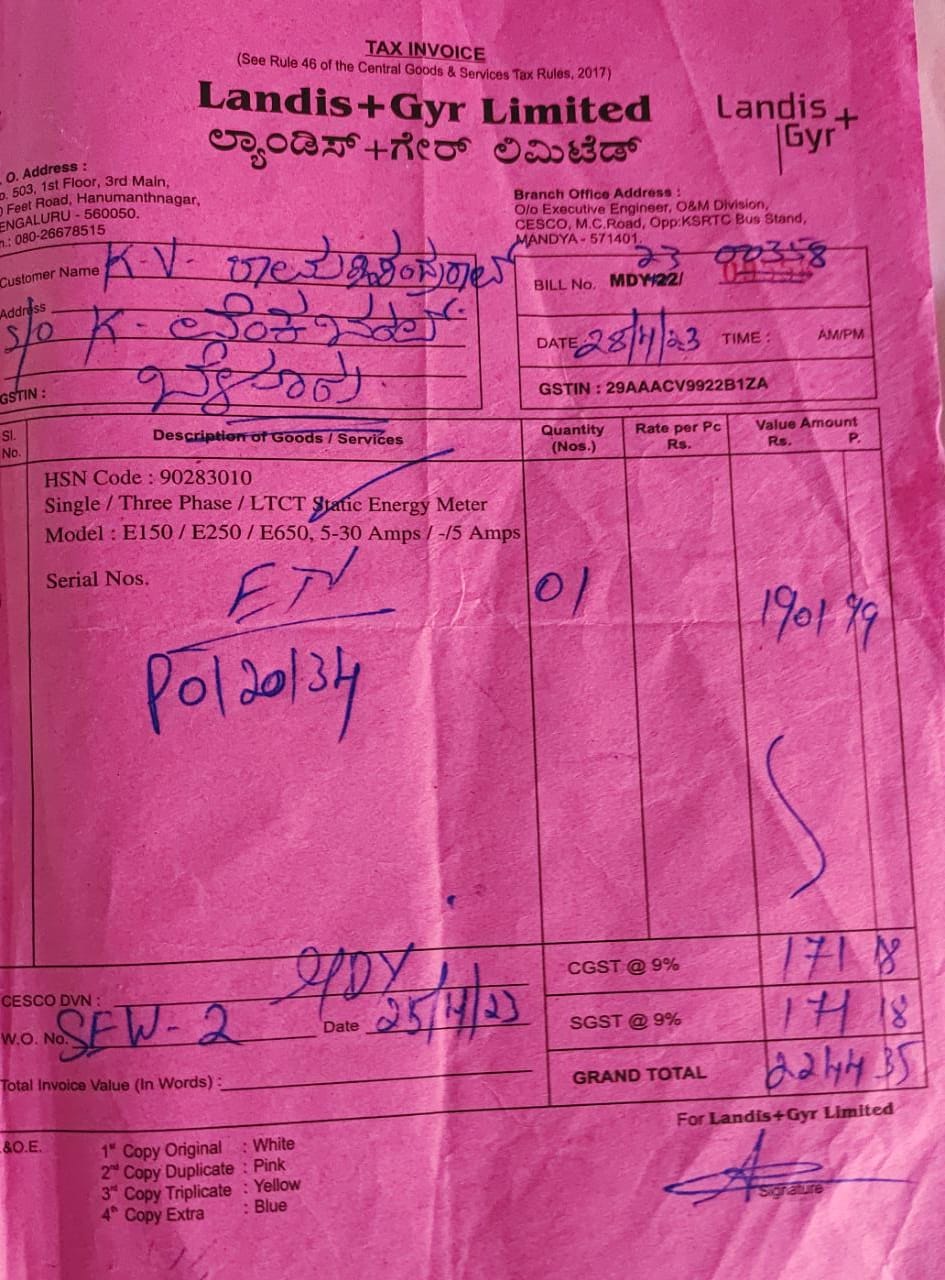 TAX INVOICE
(See Rule 46 of the Central Goods & Services Tax Rules, 2017)
Landis+Gyr Limited
ಲ್ಯಾಂಡಿಸ್+ಗೇರ್ ಲಿಮಿಟೆಡ್
Landis
Gyr+
. O. Address :
503, 1st Floor, 3rd Main,
Feet Road, Hanumanthnagar,
ENGALURU - 560050.
.: 080-26678515
Branch Office Address :
O/o Executive Engineer, O&M Division,
CESCO, M.C.Road, Opp:KSRTC Bus Stand,
MANDYA - 571401.
Customer Name K-V-
Address
S/o K-
GSTIN :
BILL No. MDY/22/ 23 00358
DATE 28/4/23 TIME : AM/PM
GSTIN : 29AAACV9922B1ZA
Sl. No. Description of Goods / Services Quantity (Nos.) Rate per Pc Rs. Value Amount Rs. P.
HSN Code : 90283010
Single / Three Phase / LTCT Static Energy Meter
Model : E150 / E250 / E650, 5-30 Amps / -/5 Amps
Serial Nos. 01 1901 99
ETV
P0/20/34
CGST @ 9% 171 18
CESCO DVN : MDY
SGST @ 9% 171 18
W.O. No. SEW-2 Date 25/4/23
GRAND TOTAL 2244 35
Total Invoice Value (In Words) :
For Landis+Gyr Limited
&O.E.
1st Copy Original : White
2nd Copy Duplicate : Pink
3rd Copy Triplicate : Yellow
4th Copy Extra : Blue
Signature